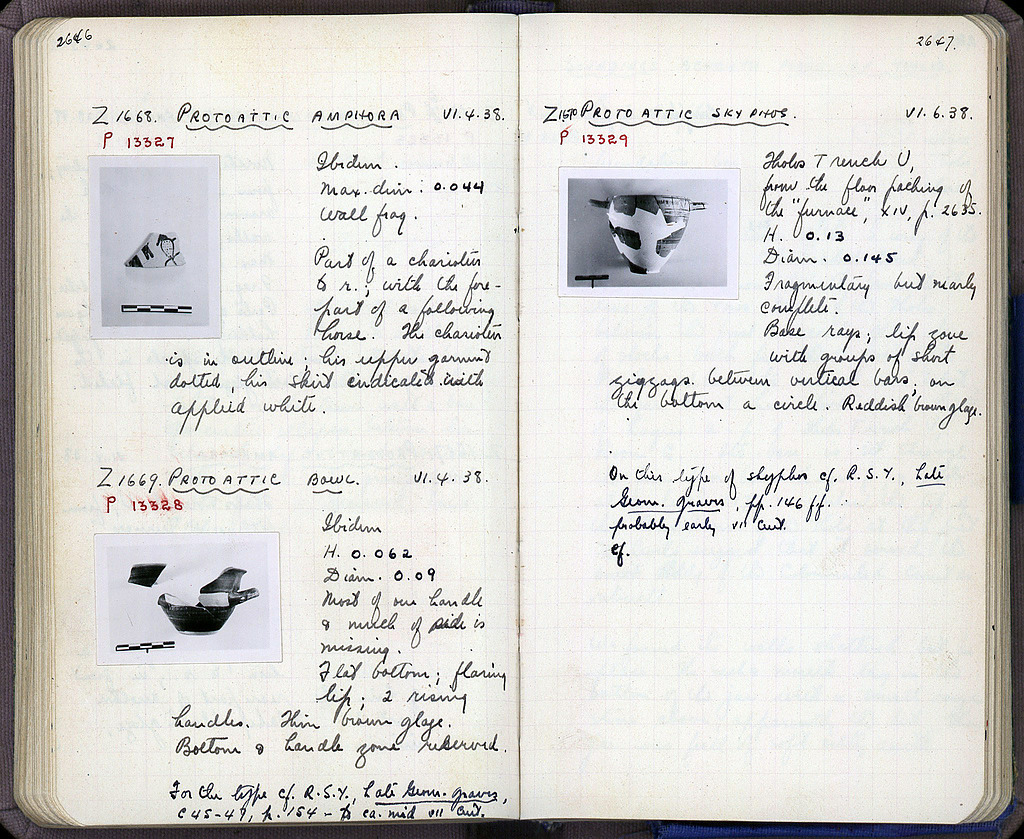 2646
Z 1668. PROTOATTIC AMPHORA VI.4.38.
P 13327
Ibidem.
Max. dim: 0.044
Wall frag.
Part of a charioteer
to r.; with the fore-
part of a following
horse. The charioteer
is in outline; his upper garment
dotted, his skirt indicated with
applied white.
Z 1669. PROTOATTIC BOWL. VI.4.38.
P 13328
Ibidem
H. 0.062
Diam. 0.09
Most of one handle
& much of side is
missing.
Flat bottom; flaring
lip; 2 rising
handles. Thin brown glaze.
Bottom & handle zone reserved.
For the type cf. R.S.Y., Late Geom. graves,
C 45-47, p. 154 - ca. mid VII Cent.
2647.
Z 1670 PROTOATTIC SKYPHOS. VI.6.38.
P 13329
Tholos Trench U,
from the floor packing of
the "furnace", XIV, p. 2635.
H. 0.13
Diam. 0.145
Fragmentary but nearly
complete.
Base rays; lip zone
with groups of short
zigzags between vertical bars; on
the bottom a circle. Reddish brown glaze.
On this type of skyphos cf. R.S.Y., Late
Geom. graves, pp. 146 ff.
probably early VII Cent.
cf.